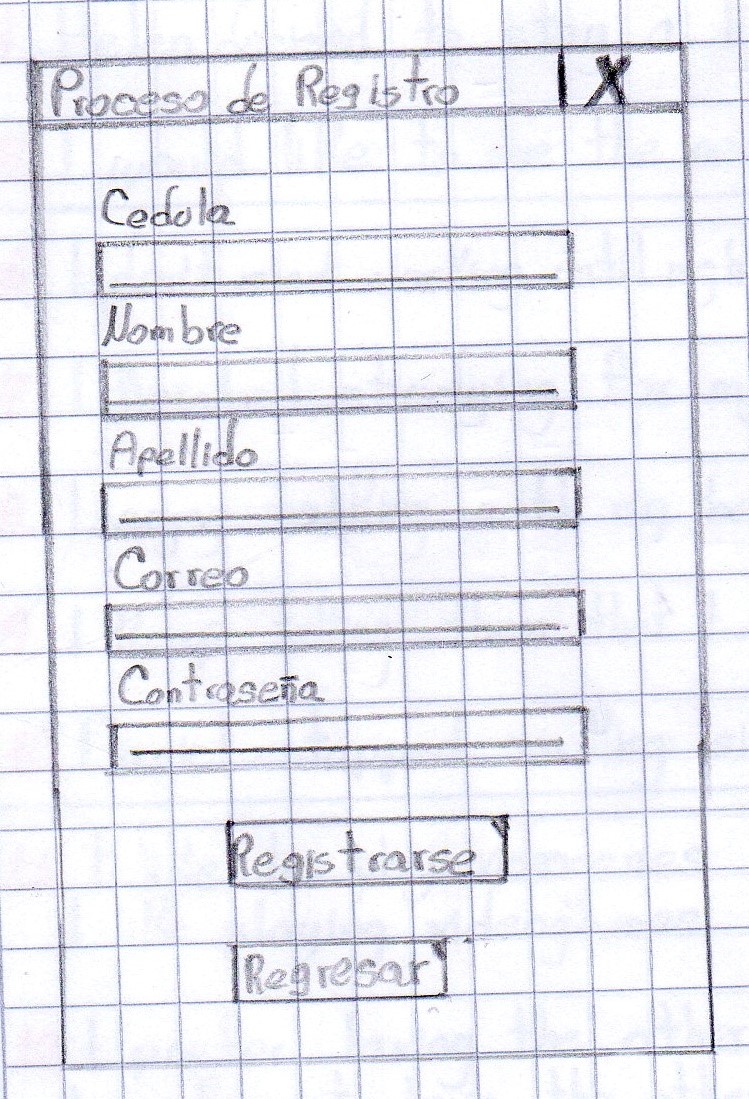 Proceso de Registro X
Cedula
Nombre
Apellido
Correo
Contraseña
Registrarse
Regresar